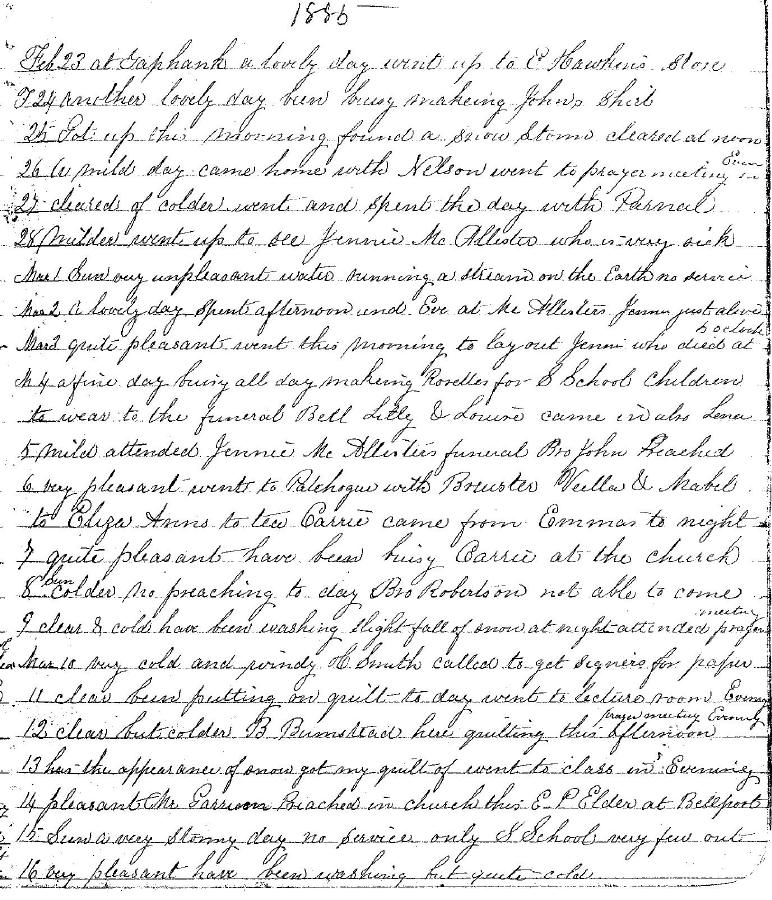 1886
Feb 23 at Yaphank a lovely day went up to E Hawkins store
F 24 Another lovely day been busy makeing Johns shirt
25 Got up this morning found a snow storm cleared at noon
26 A mild day came home with Nelson went to prayer meeting in Even
27 cleared of colder went and spent the day with Parnal
28 Milder went up to see Jennie Mc Allister who is very sick
Mar 1 Sun very unpleasant water running a stream on the Earth no service
Mar 2 A lovely day spent afternoon and Eve at Mc Allisters Jenny just alive
Mar 3 quite pleasant went this morning to lay out Jenni who died at 5 oclock
M 4 a fine day busy all day makeing Rosettes for S School Children
to wear to the funeral Bell Litty & Louise came in also Lena
5 Mild attended Jennie Mc Allisters funeral Bro John Preached
6 very pleasant went to Patchogue with Brewster Vella & Mabel
to Eliza Anns to tea Carrie came from Emmas to night
7 quite pleasant have been busy Carrie at the church
8 Sun colder no preaching to day Bro Robertson not able to come
9 clear & cold have been washing slight fall of snow at night attended prayer meeting
Mar 10 very cold and windy H Smith called to get signers for paper
11 clear been putting on quilt to day went to lecture room Evening
12 clear but colder B Bumstead here quilting this afternoon prayer meeting Evening
13 has the appearance of snow got my quilt of went to class in Evening
14 pleasant Mr Garrison Preached in church this E P Elder at Bellport
15 Sun a very stormy day no service only S School very few out
16 very pleasant have been washing but quite cold